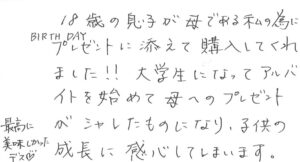 18歳の息子が母である私の為に
BIRTH DAY
プレゼントに添えて購入してくれ
ました!! 大学生になってアルバ
イトを始めて母へのプレゼント
がシャレたものになり、子供の
成長に感心してしまいます。
最高に
美味しかった
デス♡